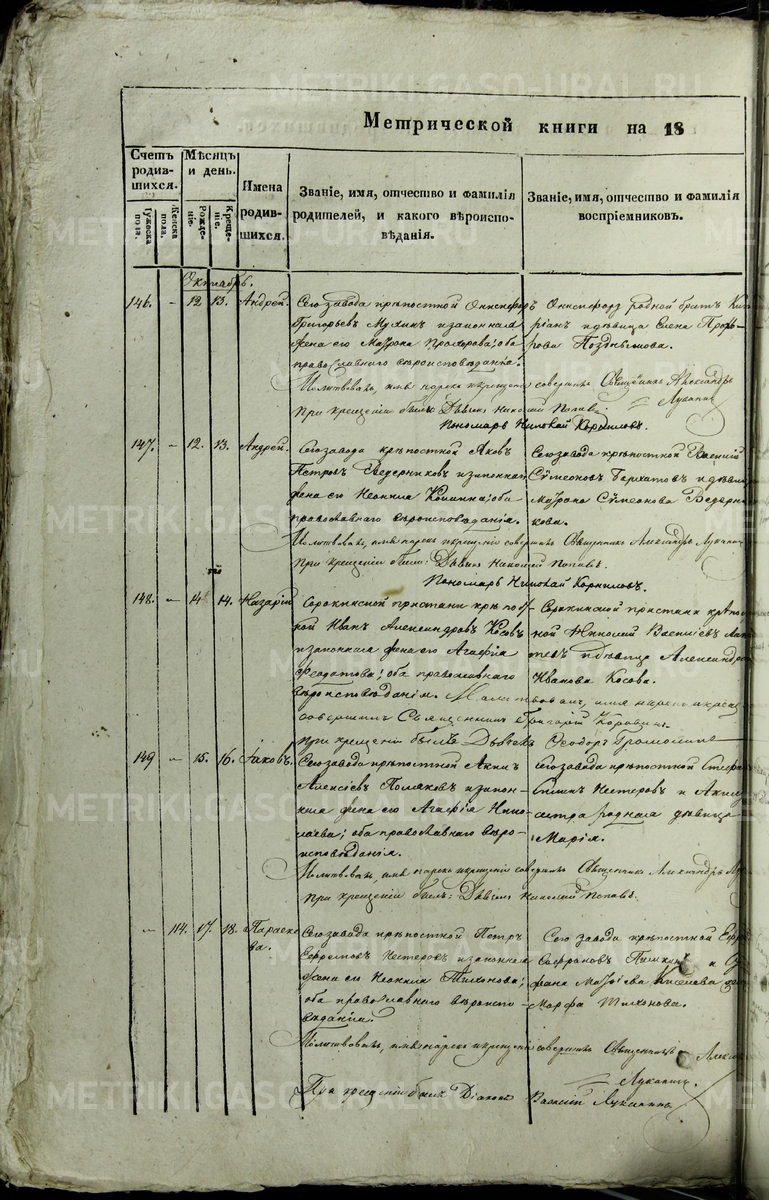 Метрической книги на 18
Счетъ родившихся.
Мужеска пола.
Женска пола.
Мѣсяцъ и день.
Рожденіе.
Крещеніе.
Имена родившихся.
Званіе, имя, отчество и фамилія родителей, и какого вѣроисповѣданія.
Званіе, имя, отчество и фамилія воспріемниковъ.
Октябрь.
146. – 12 13. Андрей.
Сего завода крѣпостной Онисифоръ
Григорьевъ Мухинъ и законная
жена его Матрона Прохорова; оба
православнаго вѣроисповѣданія.
Онисифора родной братъ
и дѣвица Елена
Молитвовалъ, имя нарекъ и крещеніе совершилъ Священникъ Александръ
Луканинъ
При крещеніи былъ: Дьячекъ Николай Поповъ.
Пономарь Николай Корниловъ.
147. – 12. 13. Андрей.
Сего завода крѣпостной Яковъ
Петровъ Ведерниковъ и законная
жена его Неонила; оба
православнаго вѣроисповѣданія.
Сего завода крѣпостной Василій
Сѵмеоновъ Бархатовъ и дѣвица
Матрона Сѵмеонова Ведерни-
кова.
Молитвовалъ, имя нарекъ и крещеніе совершилъ Священникъ Александръ Луканинъ
При крещеніи были: Дьячекъ Николай Поповъ.
Пономарь Николай Корниловъ.
148. – 14 14. Назарій
Сорокинской пристани крѣпост-
ной Иванъ Александровъ Косовъ
и законная жена его Агафія
Феодотова; оба православнаго
вѣроисповѣданія.
Сорокинской пристани крѣпост-
ной Николай Васильевъ
и дѣвица Александра
Иванова Косова.
Молитвовалъ, имя нарекъ и крещ.
совершилъ Священникъ Григорій Коровинъ.
При крещеніи былъ Дьячекъ Ѳеодоръ
149 – 15. 16. Іаковъ.
Сего завода крѣпостной Акимъ
Алексіевъ Поляковъ и закон-
ная жена его Агафія Нико-
лаева; оба православнаго вѣро-
исповѣданія.
Сего завода крѣпостной
Нестеровъ и Акима
сестра родная дѣвица
Марія.
Молитвовалъ, имя нарекъ и крещеніе совершилъ Священникъ Александръ
При крещеніи былъ: Дьячекъ Николай Поповъ.
– 114. 17. 18. Параске-
ва.
Сего завода крѣпостной Петръ
Ефремовъ Нестеровъ и законная
жена его Неонила Тихонова;
оба православнаго вѣроиспо-
вѣданія.
Сего завода крѣпостной
Сафроновъ и
Матвіева Киселева
Марфа Тихонова.
Молитвовалъ, имя нарекъ и крещеніе совершилъ Священникъ
Луканинъ.
При крещеніи былъ Діаконъ Василій Луканинъ
METRIKI.GASO-URAL.RU